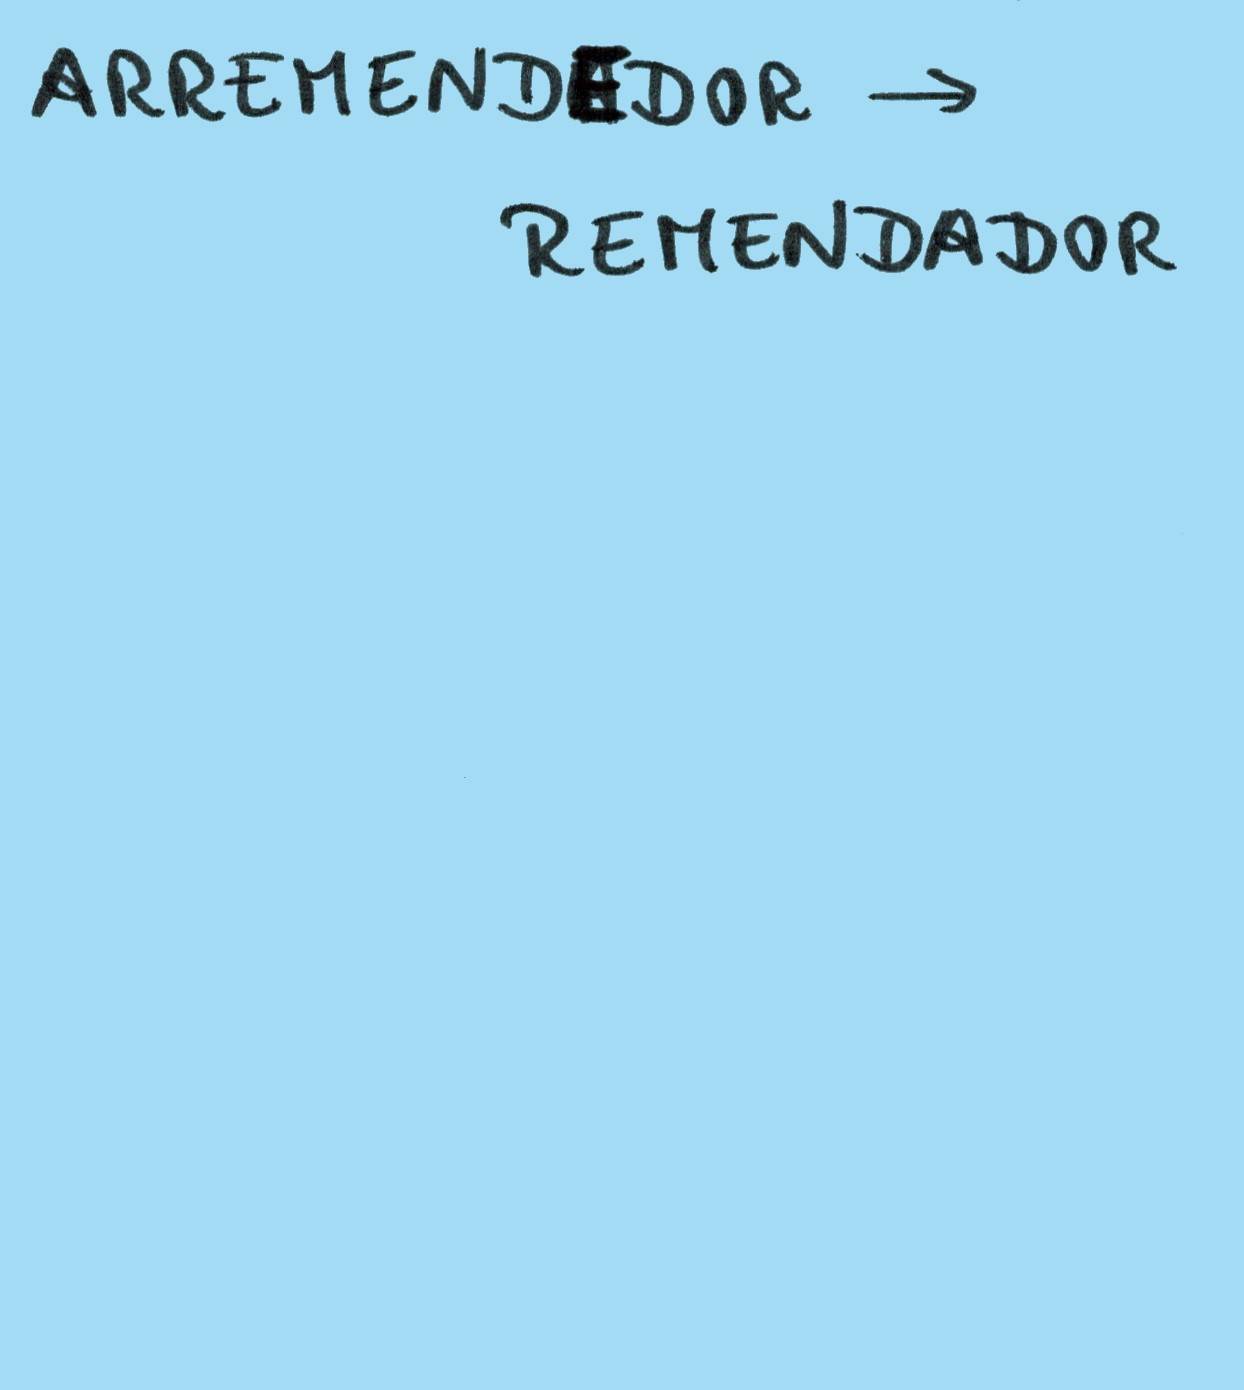 ARREMENDEDOR →
REMENDADOR